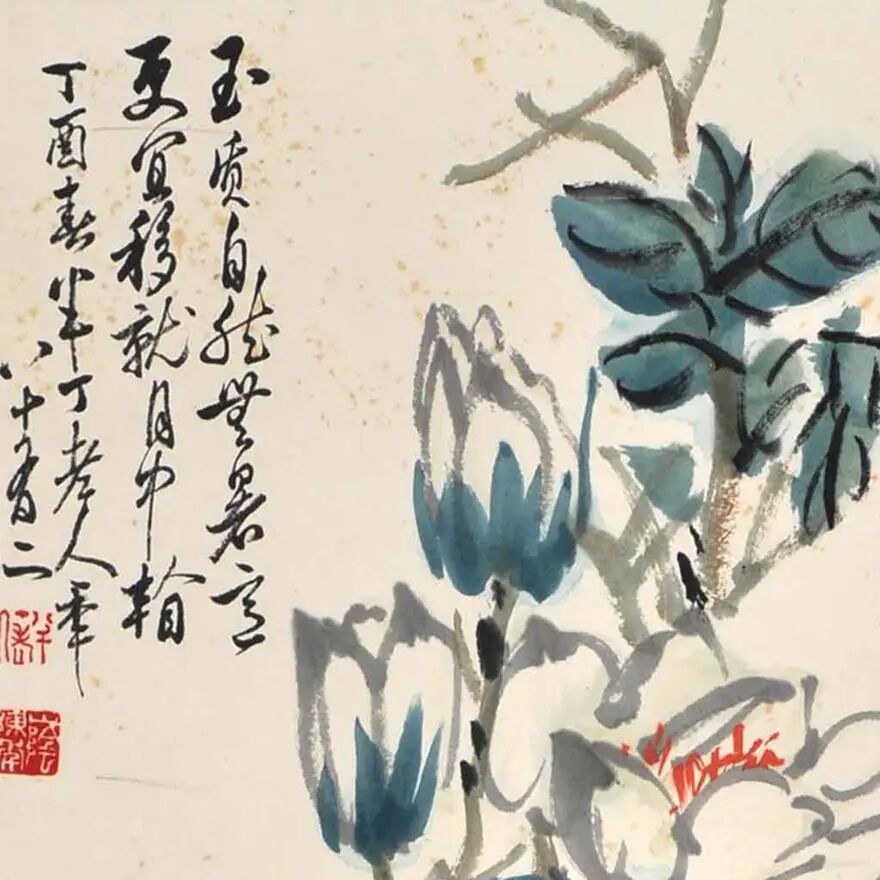 玉質自然無暑意
更宜移就月中看
丁酉春半丁老人年
八十有二